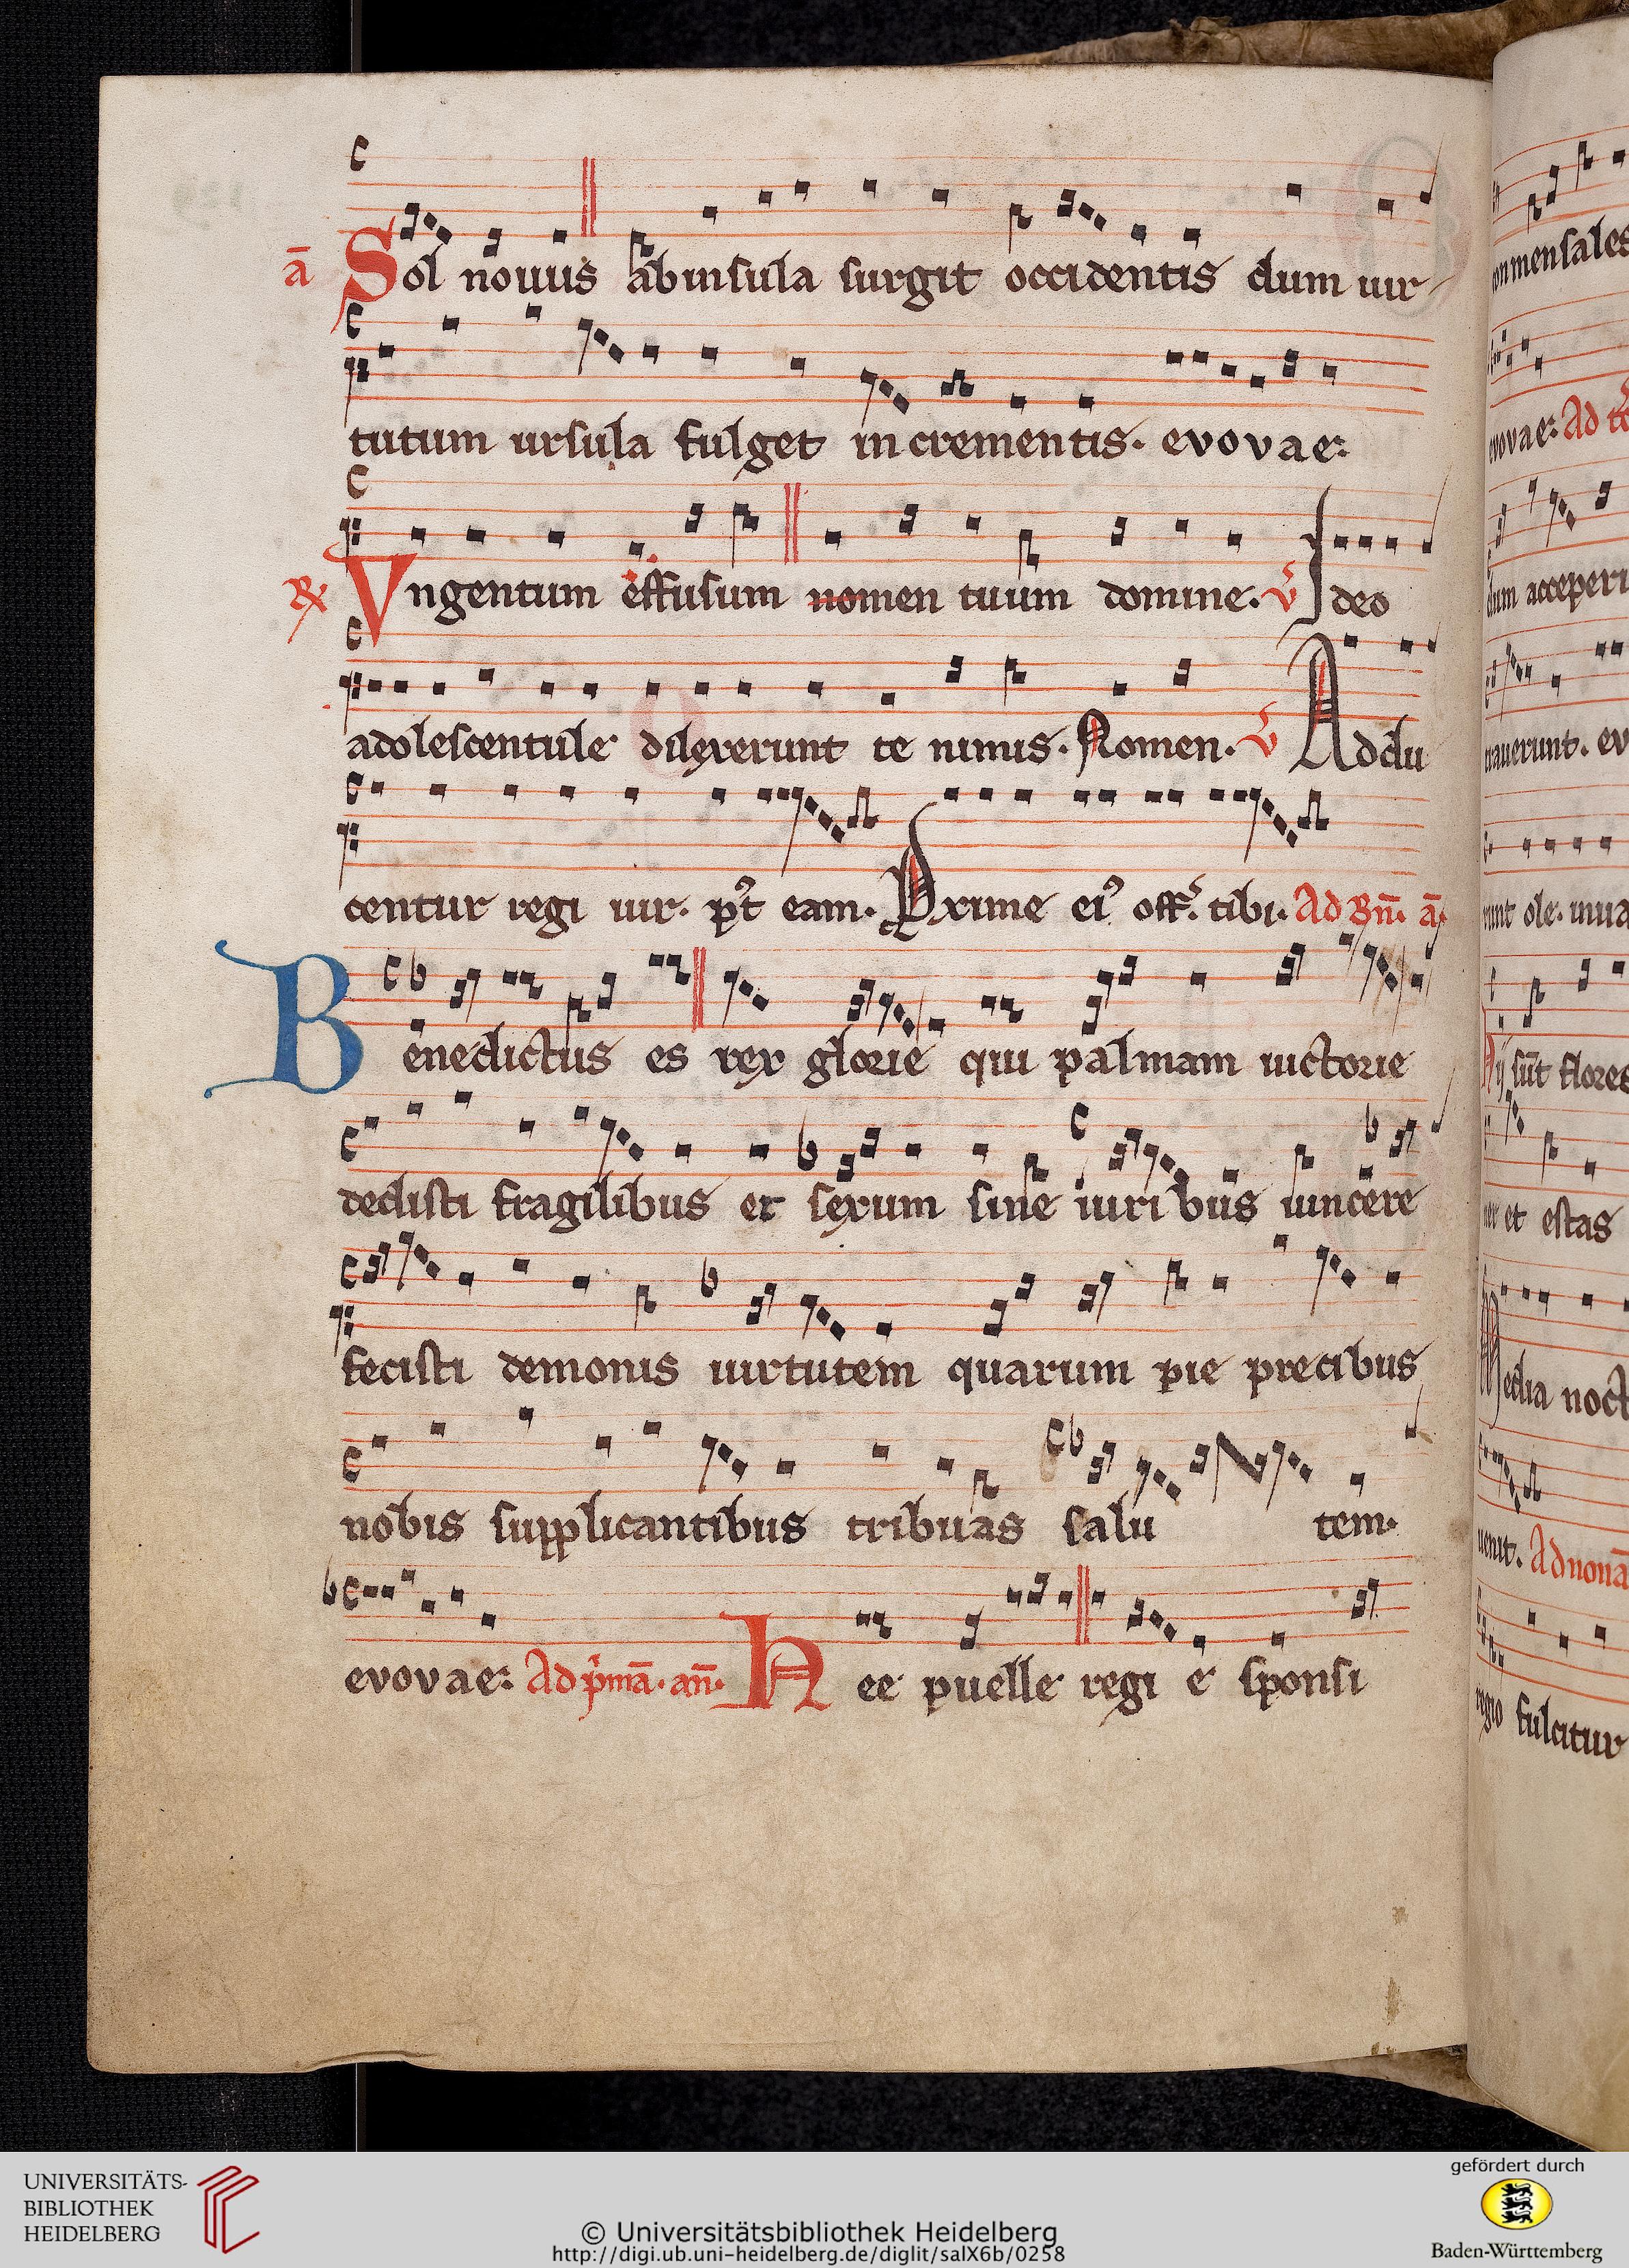 ā Sol nouus ab insula surgit occidentis dum uir
tutum ursula fulget in crementis. evovae:
℟ Vngentum effusum nomen tuum domine. v̄ Ideo
adolescentule dilexerunt te nimis. Nomen. v̄ Addu
centur regi uir. p̾t eam. Proxime ei᾿ off᾿. tibi. Ad Bn̄. ā.
Benedictus es rex glorie qui palmam uictorie
dedisti fragilibus et sexum sine uiribus uincere
fecisti demonis uirtutem quarum pie precibus
nobis supplicantibus tribuas salu tem.
evovae: Ad p'mā. an̄. Hee puelle regi e sponsi
onmensales
evovae: Ad
dum acceperi
rauerunt. ev
runt ole. inua
sūt flores
et estas
Media noct
uenit. Ad nonā
regio fulcitur
UNIVERSITÄTS-
BIBLIOTHEK
HEIDELBERG
© Universitätsbibliothek Heidelberg
http://digi.ub.uni-heidelberg.de/diglit/salX6b/0258
gefördert durch
Baden-Württemberg